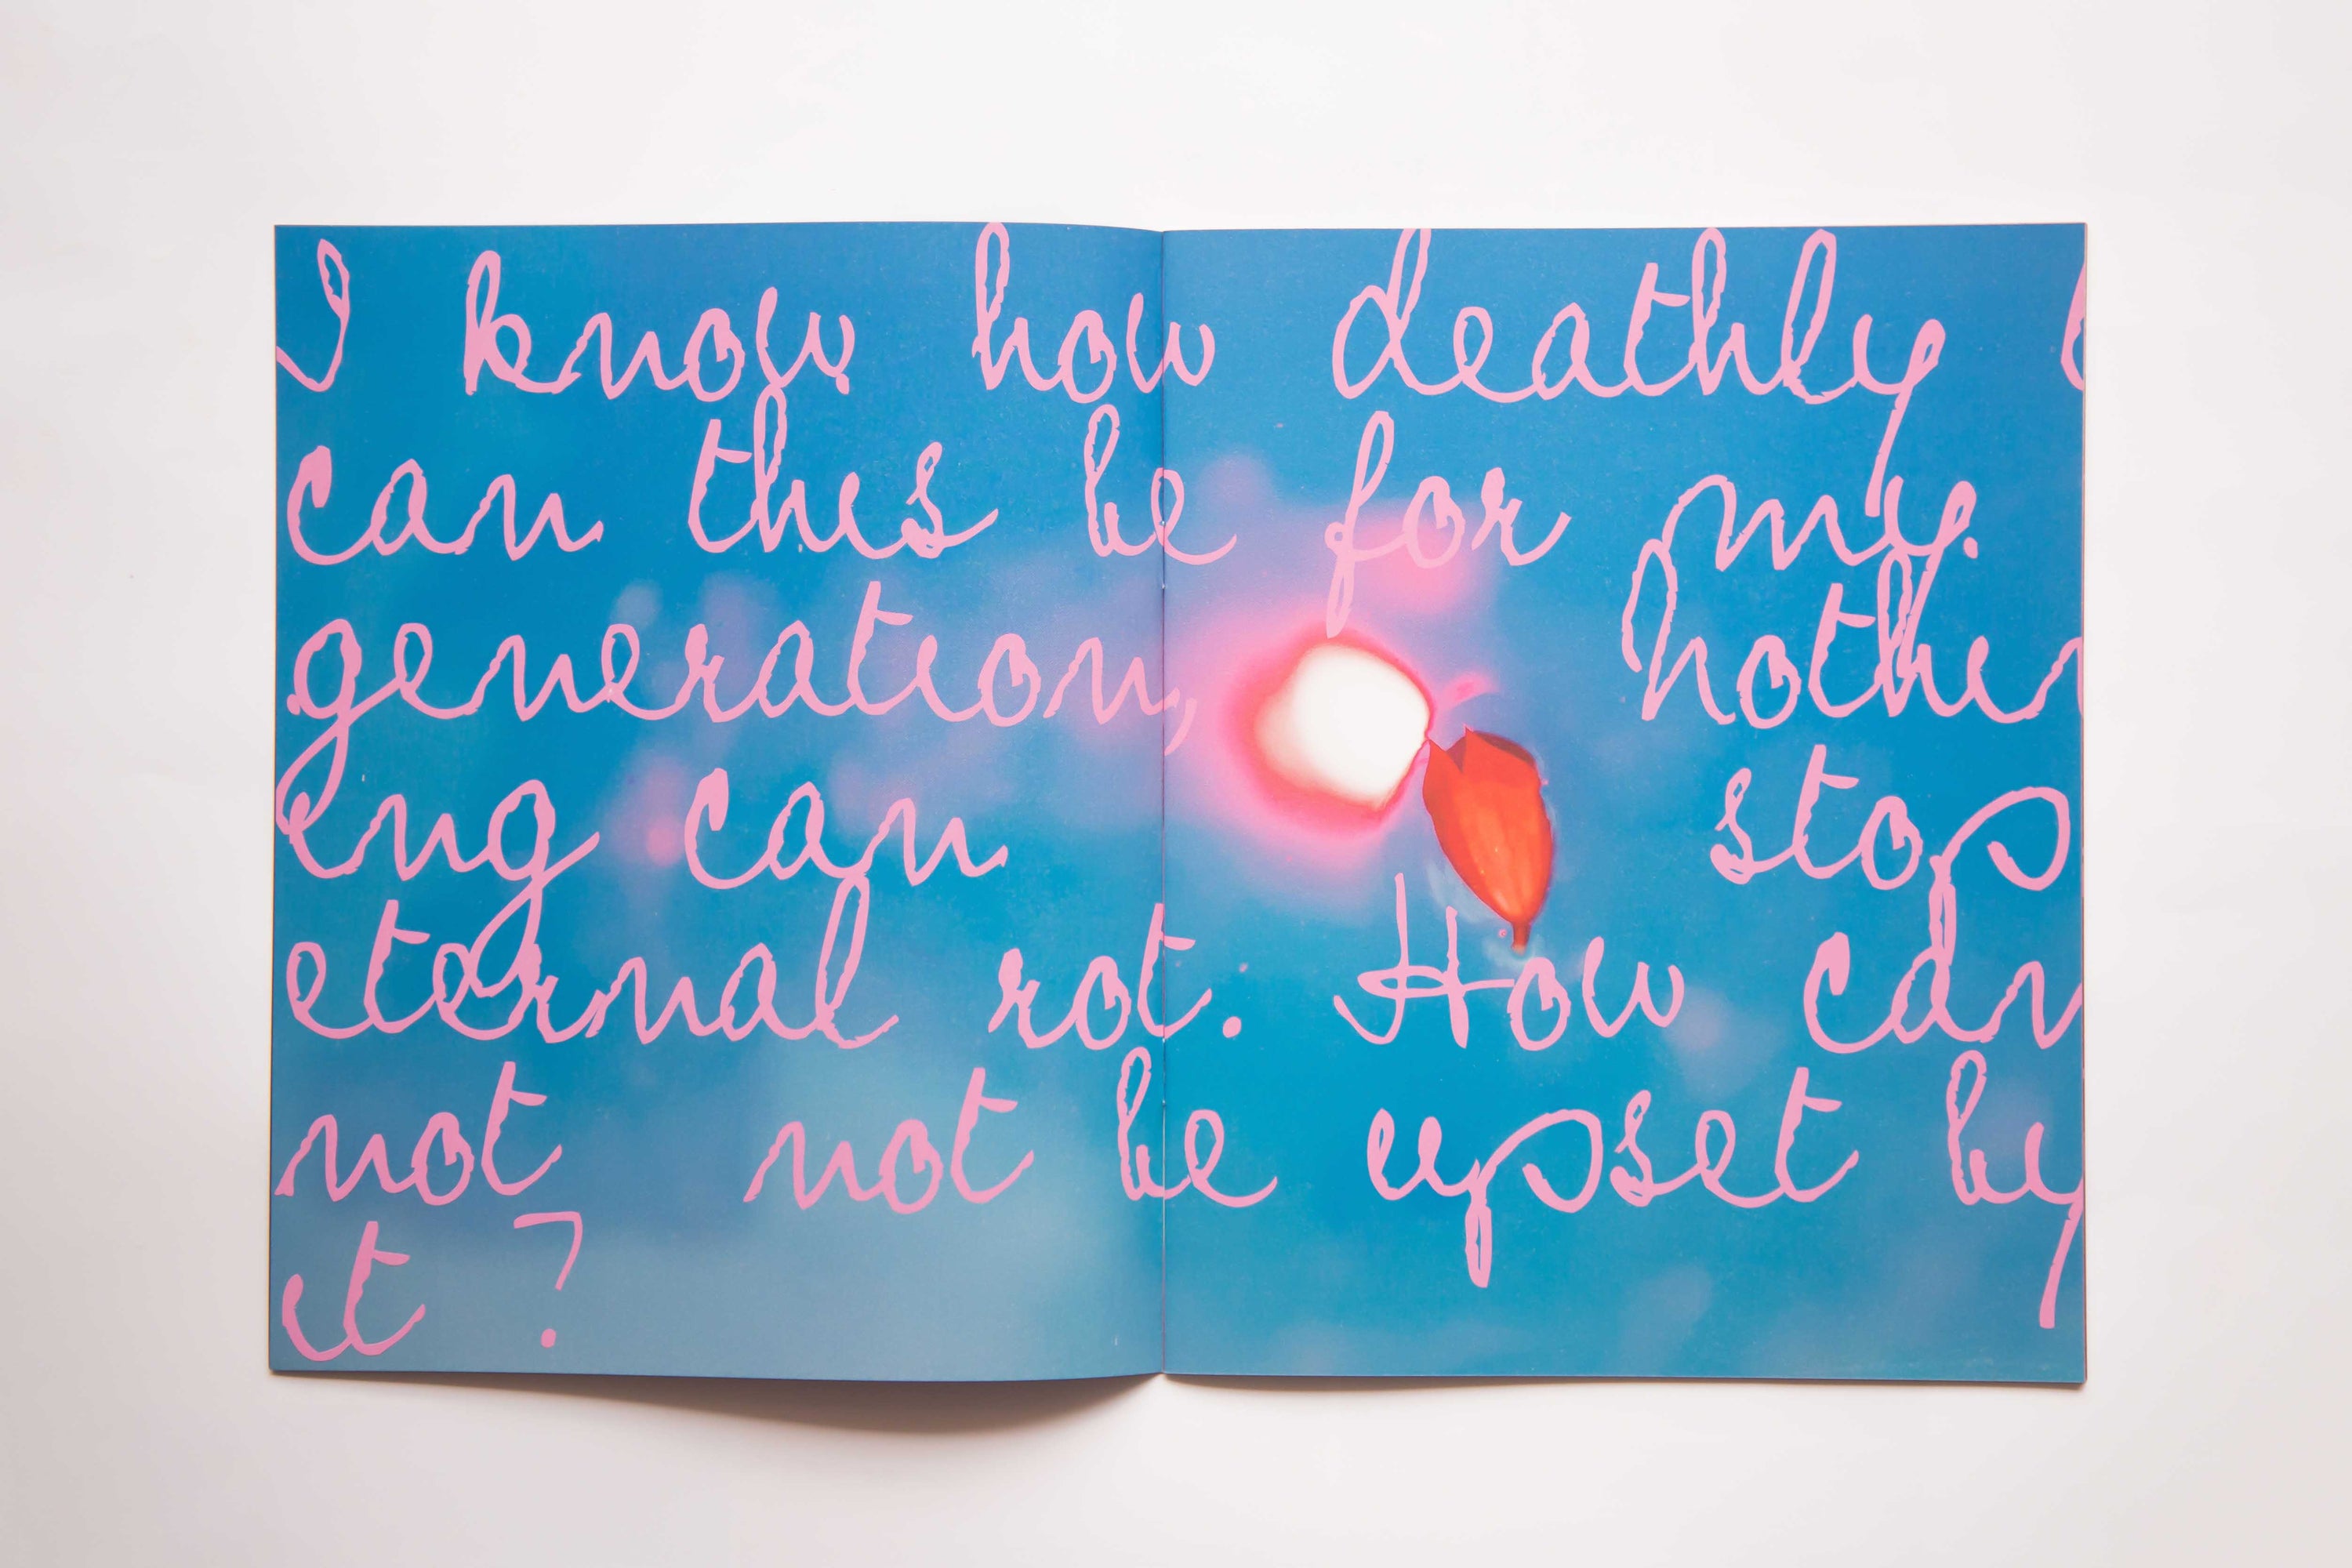 I know how deathly
can this be for my
generation, Nothin
ing can stop
eternal rot. How can
not not be upset by
it ?